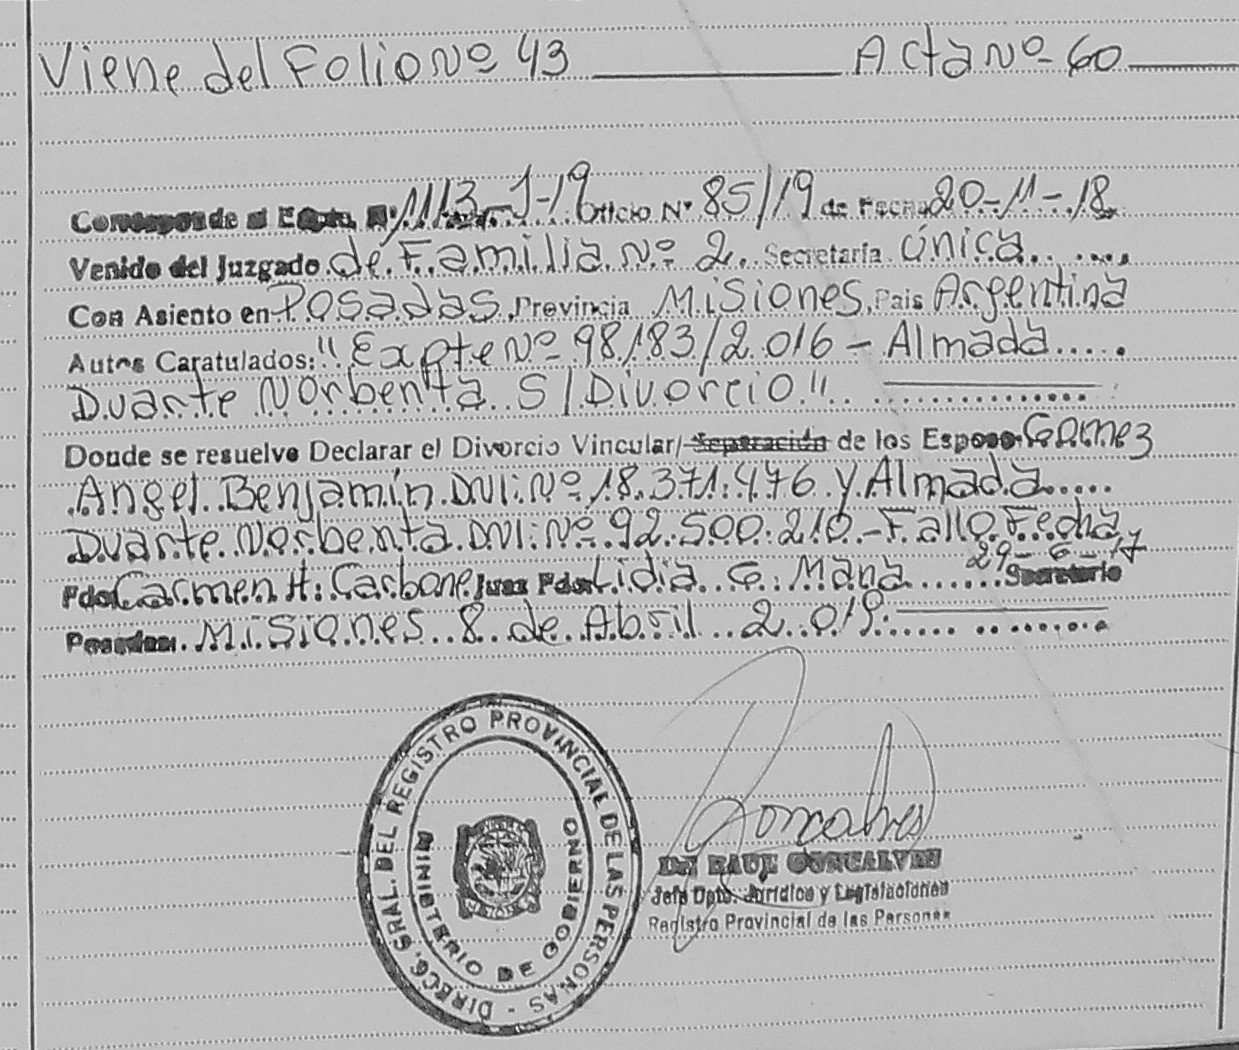 Viene del Folio Nº 43 Acta Nº 60
Corresponde al Expte. Nº 1113 J-19 Oficio Nº 85/19 de Fecha 20-11-18
Venido del Juzgado de Familia Nº 2. Secretaría Única
Con Asiento en Posadas, Provincia Misiones, Pais Argentina
Autos Caratulados: "Expte Nº 98183/2016 - Almada
Duarte Norbenta S/Divorcio"
Donde se resuelve Declarar el Divorcio Vincular/Separación de los Esposos Gomez
Angel Benjamín DNI: Nº 18.371.476 y Almada
Duarte Norbenta DNI: Nº 92.500.210 - Fallo Fecha
29-6-17
Fdo Carmen H: Carbone Juez Fdo: Lidia G. Mana Secretario
Posadas: Misiones 8 de Abril 2.019
DIRECC. GRAL. DEL REGISTRO PROVINCIAL DE LAS PERSONAS -
MINISTERIO DE GOBIERNO
Goncalves
Dr RAUL GONCALVES
Jefe Dpto. Jurídico y Legislaciones
Registro Provincial de las Personas